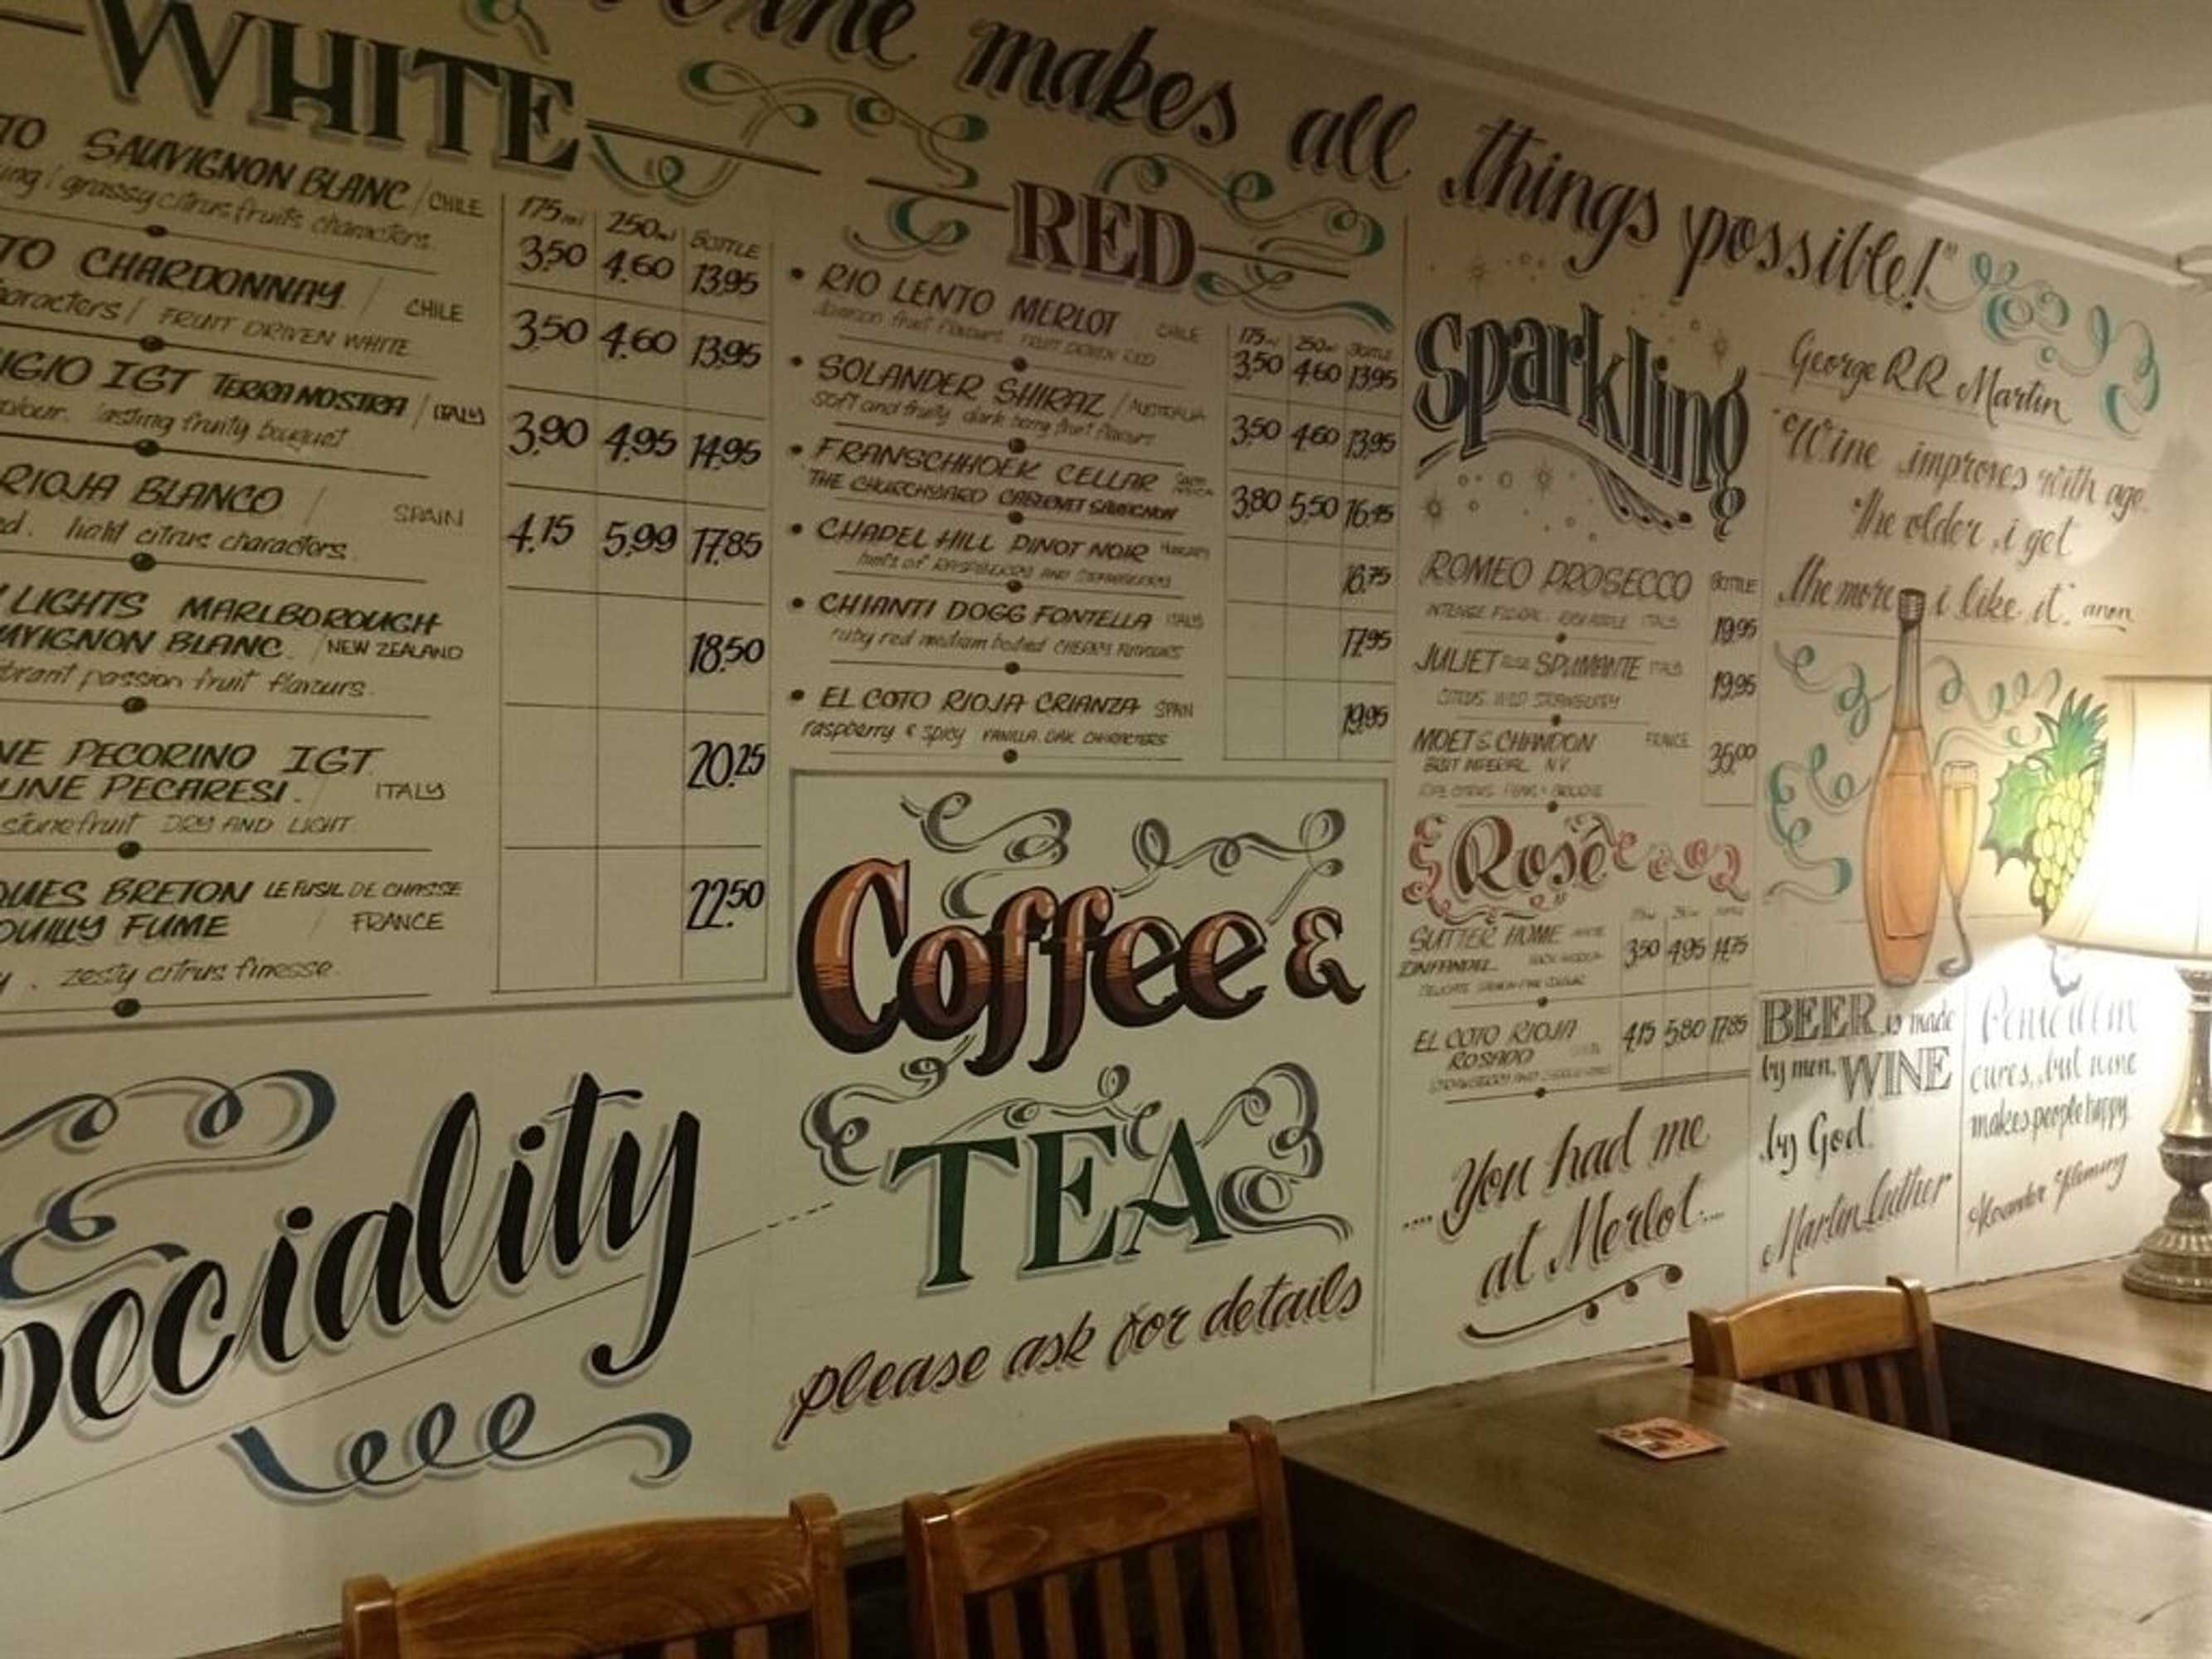 makes all things possible!"
WHITE
SAUVIGNON BLANC / CHILE
grassy citrus fruits characters.
175ml 250ml BOTTLE
3.50 4.60 13.95
CHARDONNAY / CHILE
FRUIT DRIVEN WHITE
3.50 4.60 13.95
IGT TERRA NOSTRA / ITALY
lasting fruity bouquet
3.90 4.95 14.95
RIOJA BLANCO / SPAIN
light citrus characters.
4.15 5.99 17.85
LIGHTS MARLBOROUGH
BLANC. / NEW ZEALAND
passion fruit flavours.
18.50
PECORINO IGT.
PECARESI. / ITALY
stonefruit DRY AND LIGHT
20.25
BRETON LE FUSIL DE CHASSE
FUME / FRANCE
zesty citrus finesse.
22.50
RED
• RIO LENTO MERLOT CHILE
fruit flavours FRUIT DRIVEN RED
175ml 250ml BOTTLE
3.50 4.60 13.95
• SOLANDER SHIRAZ / AUSTRALIA
soft and fruity dark berry fruit flavours
3.50 4.60 13.95
• FRANSCHHOEK CELLAR SOUTH AFRICA
THE CHURCHYARD CABERNET SAUVIGNON
3.80 5.50 16.45
• CHAPEL HILL PINOT NOIR HUNGARY
hints of RASPBERRY AND STRAWBERRY
16.75
• CHIANTI DOGG FONTELLA ITALY
ruby red medium bodied CHERRY FLAVOURS
17.95
• EL COTO RIOJA CRIANZA SPAIN
raspberry & spicy VANILLA OAK CHARACTERS
19.95
Sparkling
ROMEO PROSECCO BOTTLE
INTENSE FLORAL. ITALY
19.95
JULIET SPUMANTE ITALY
CITRUS. WILD STRAWBERRY
19.95
MOET & CHANDON FRANCE
BRUT IMPERIAL N.V.
35.00
Rosé
SUTTER HOME
ZINFANDEL
3.50 4.95 14.75
EL COTO RIOJA
ROSADO
4.15 5.80 17.85
George R R Martin
"Wine improves with age.
The older i get
the more i like it." anon
BEER is made
by men, WINE
by God."
Martin Luther
Penicillin
cures, but wine
makes people happy.
Alexander Fleming
Coffee &
TEA
please ask for details
.... You had me
at Merlot....